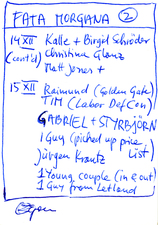 FATA MORGANA 2
14 XII Kalle + Birgit Schröder
(cont'd) Christina Glanz
Matt Jones +
15 XII Raimund (Golden Gate)
TIM (Labor DefCon)
GABRIEL + STYRBJÖRN
1 Guy (picked up price
List)
Jürgen Krantz
1 Young couple (in & out)
1 Guy from Letland